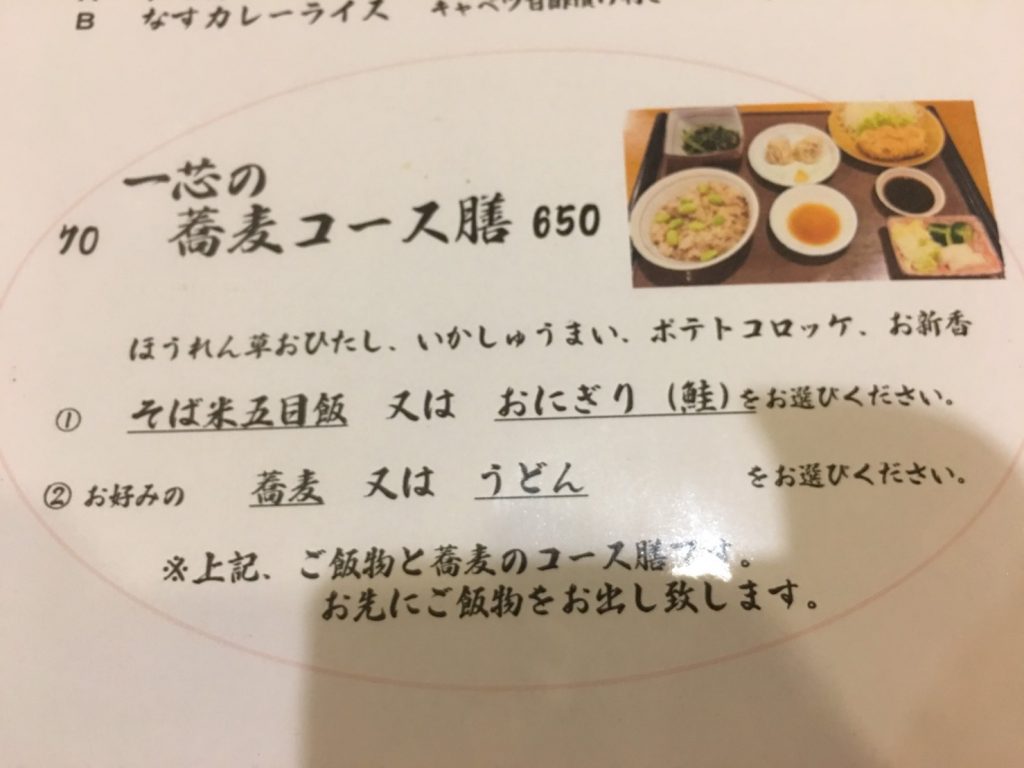 B なすカレーライス キャベツ甘酢漬け付き
一芯の
70 蕎麦コース膳 650
ほうれん草おひたし、いかしゅうまい、ポテトコロッケ、お新香
① そば米五目飯 又は おにぎり (鮭)をお選びください。
② お好みの 蕎麦 又は うどん をお選びください。
※上記、ご飯物と蕎麦のコース膳です。
お先にご飯物をお出し致します。